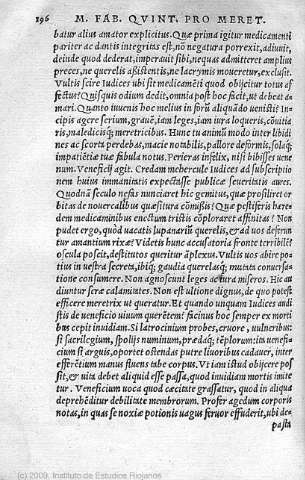 196 M. FAB. QVINT. PRO MERET.
batur alius amator explicitus. Quæ prima igitur medicamenti
pariter ac dantis integritas est, nõ negatura porrexit, adiunxit,
deinde quod dederat, imperauit sibi, nequas admitteret amplius
preces, ne querelis assistentis, ne lacrymis moueretur, exclusit.
Vultis scire Iudices ubi sit medicamẽti quod obijcitur totus af
fectus? Quisquis odium dedit, omnia post hoc facit, ut debeat a-
mari. Quanto inuenis hoc melius in forũ aliquãdo uenisti? In-
cipis agere serium, grauẽ, iam leges, iam iura loqueris, cõuitia
ris, maledicisq́; meretricibus. Hunc tu animũ modo inter libidi
nes ac scorta perdebas, macie notabilis, pallore deformis, solaq́;
impatiẽtia tuæ fabula notus. Perieras infelix, nisi bibisses uene
num. Veneficij agit. Credam mehercule Iudices ad subscriptio
nem huius immanitatis expectasse publicæ seueritatis aures.
Quodnã sceleo nefas nunciaret hic gemitus, quæ prosiliret or
bitas de nouercalibus quæsitura cõmissis? Quæ pestiferis haren
dem medicaminibus enectum tristis cõploraret affinitas? Non
pudet ergo, quòd uacatis lupanariũ querelis, &amp; ad uos deferun
tur amantium rixæ? Videtis hunc accusatoria fronte terribilẽ?
oscula poscit, destitutos queritur amplexus. Vultis uos abire po
tius in uestra secreta, ibiq́; gaudia querelasq́; mutua conuersa-
tione consumere. Non agnoscunt leges ac iura miseros. Hic au
diuntur sera calamitates. Non est ultione dignus, de quo potest
efficere meretrix ut queratur. Et quando unquam Iudices audi
stis de beneficio uiuum querẽtem? facinus hoc semper ex morti
bus cepit inuidiam. Si latrocinium probes, cruore, uulneribus:
si sacrilegium, spolijs numinum, prædaq́; tẽplorum: sin uenefi-
cium sit arguis, oportet ostendas putre liuoribus cadauer, inter
efferẽtium manus fluens tabe corpus. Vt iam istud obijcere pos
sit, &amp; uita debet aliquid esse passa, quod inuidiam mortis imite
tur. Veneficium uoca quod cæcitate grassatur, quod in aliqua
deprehẽditur debilitate membrorum. Profer agedum corporis
notas, in quas se noxiæ potionis uagus feruor effuderit, ubi de-
pasta
(c) 2009. Instituto de Estudios Riojanos